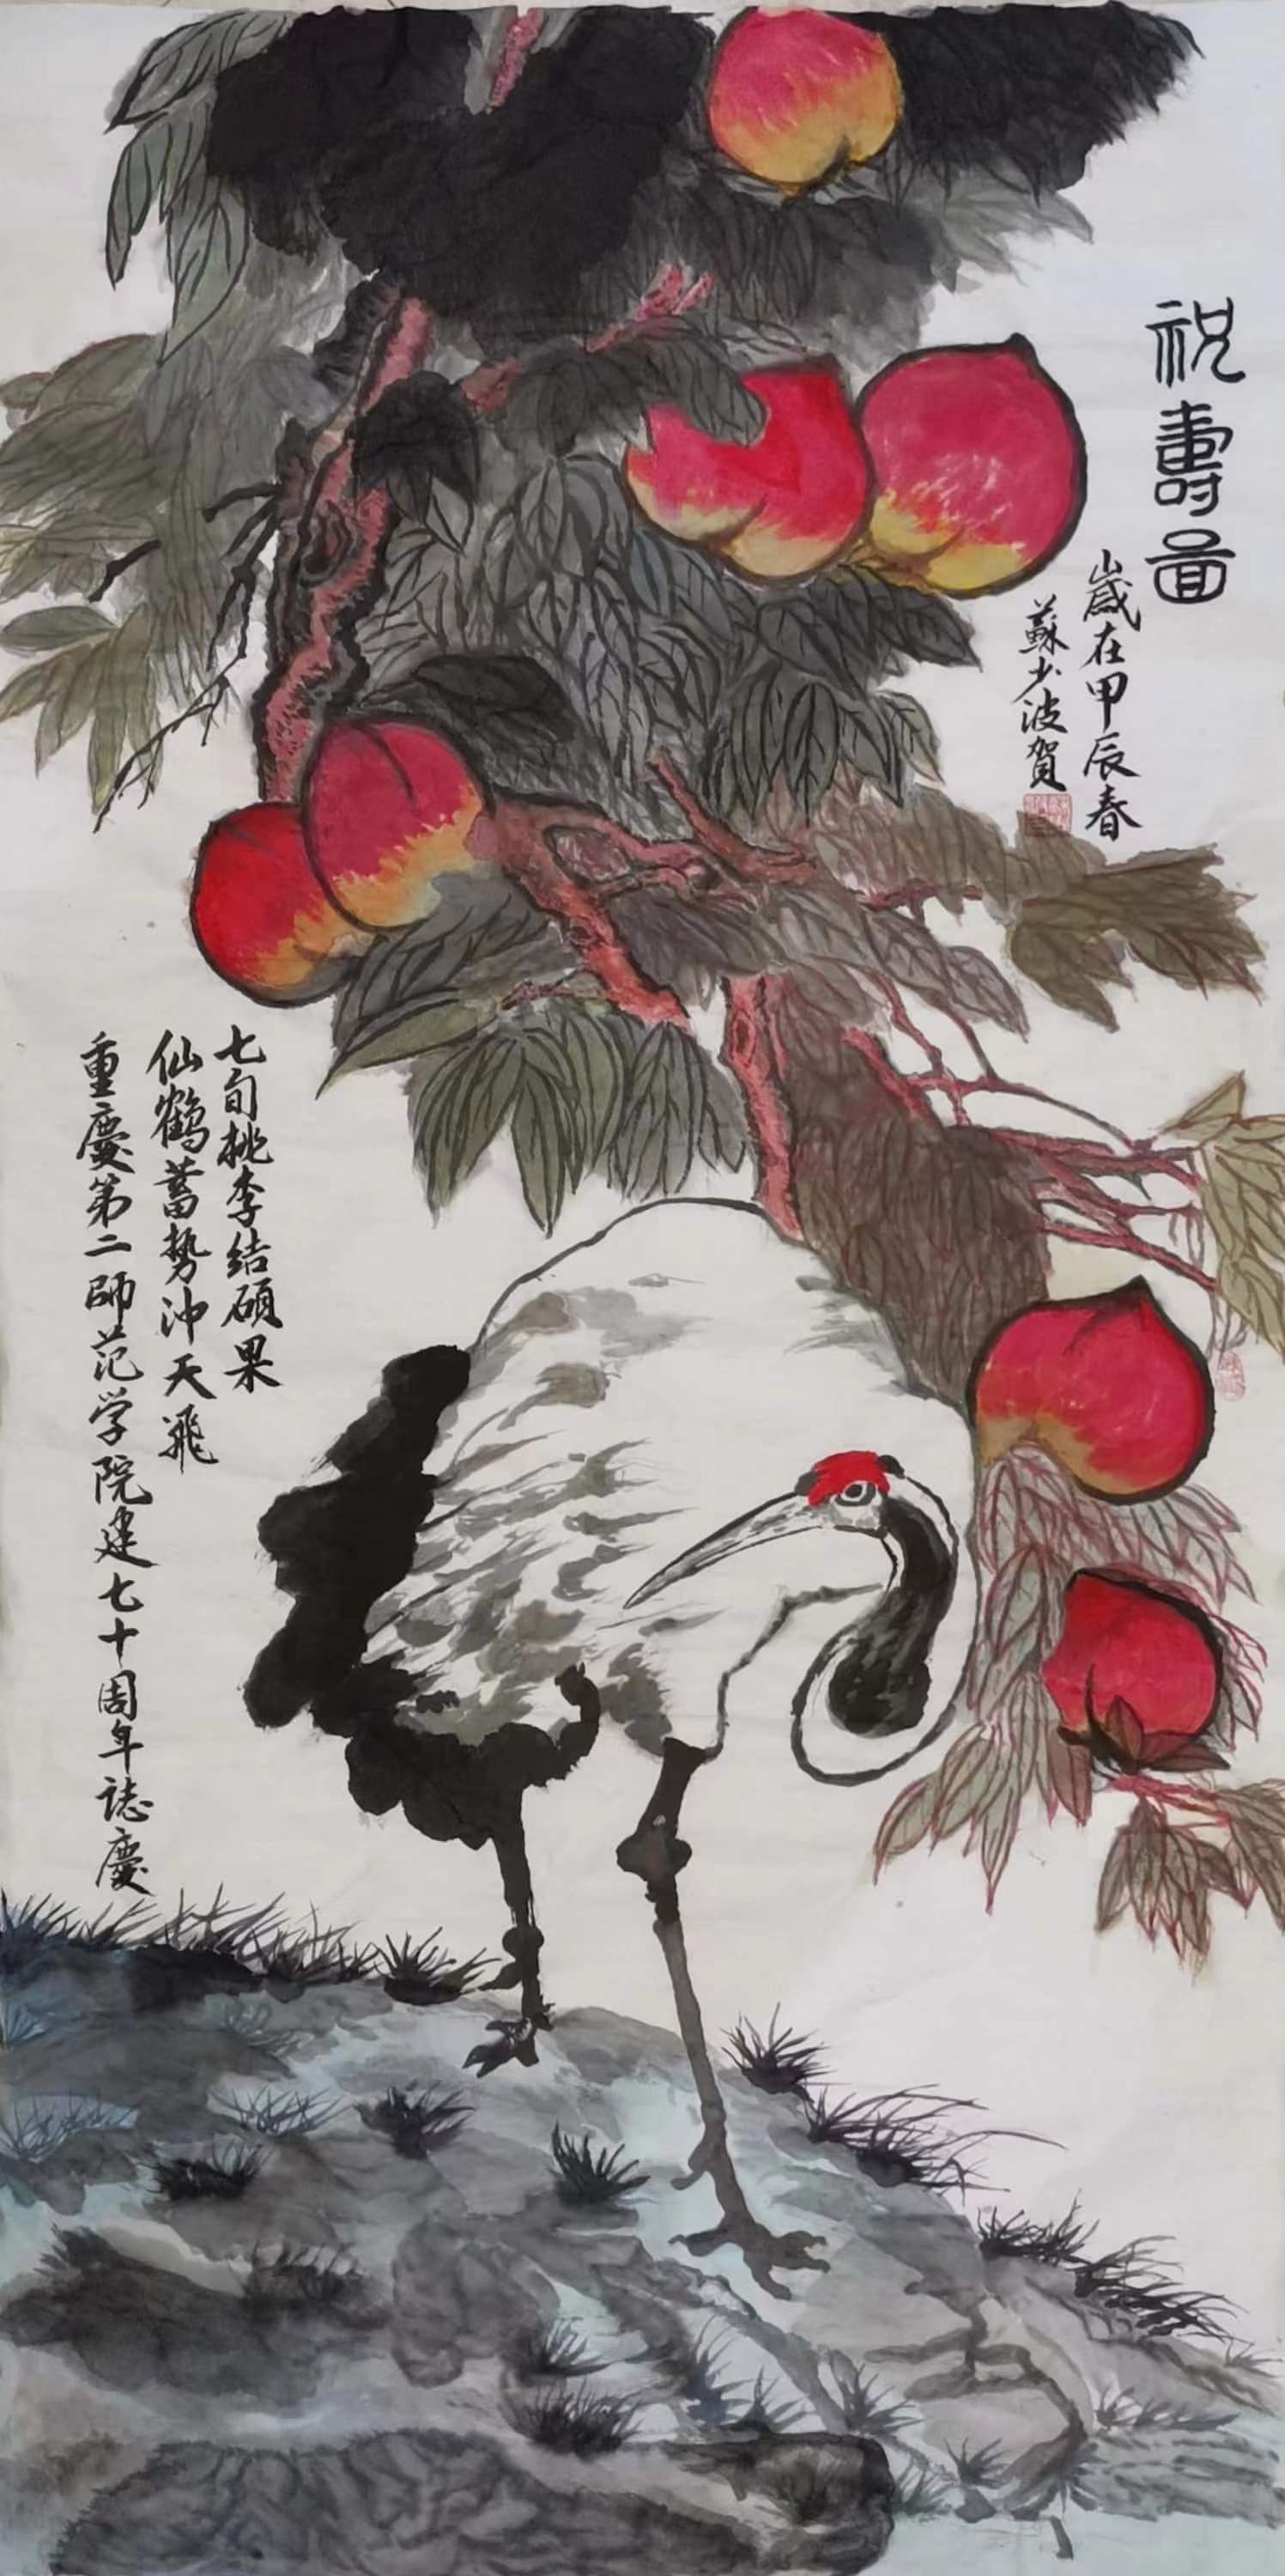 祝壽圖
歲在甲辰春
蘇少波賀
七旬桃李结碩果
仙鶴蓄势冲天飛
重慶第二師范学院建七十周年誌慶